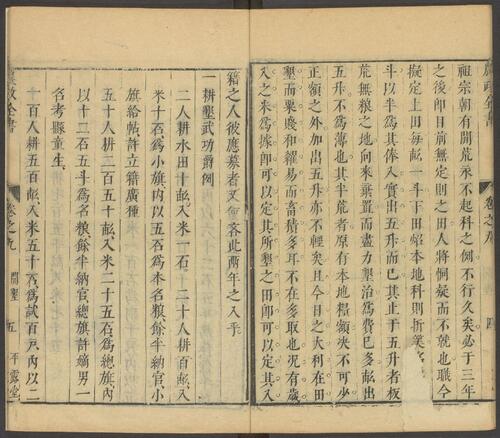 農政全書 卷之九 四
祖宗朝有開荒永不起科之例不行久矣必于三年
之後卽目前無定則之田人將恫疑而不就也職今
擬定上田每畝一斗下田照本地科則折筭
斗以半爲其俸入實出五升而已其止于五升者极
荒無粮之地向來棄置而盡力墾治爲費已多畝出
五升不爲薄也其半荒者原有本地糧額决不可少
正額之外加出五升亦不輕矣且今日之大利在田
墾而粟廣和糴易而畜積多耳不在多取也況有歲
入之米爲據卽可以定其所墾之田卽可以定其入
籍之人彼應募者又何吝此兩年之入乎
一耕墾武功爵例
二人耕水田十畝入米一石 二十人耕百畝入
米十石爲小旗内以五石爲本名粮餘半納官小
旗給帖許立籍廣種
五十人耕二百五十畝入米二十五石爲總旗内
以十二石五斗爲名粮餘半納官總旗許嫡男一
名考縣童生
一百人耕五百畝入米五十石爲試百戶内以二
農政全書 卷之九 開墾 五 平露堂